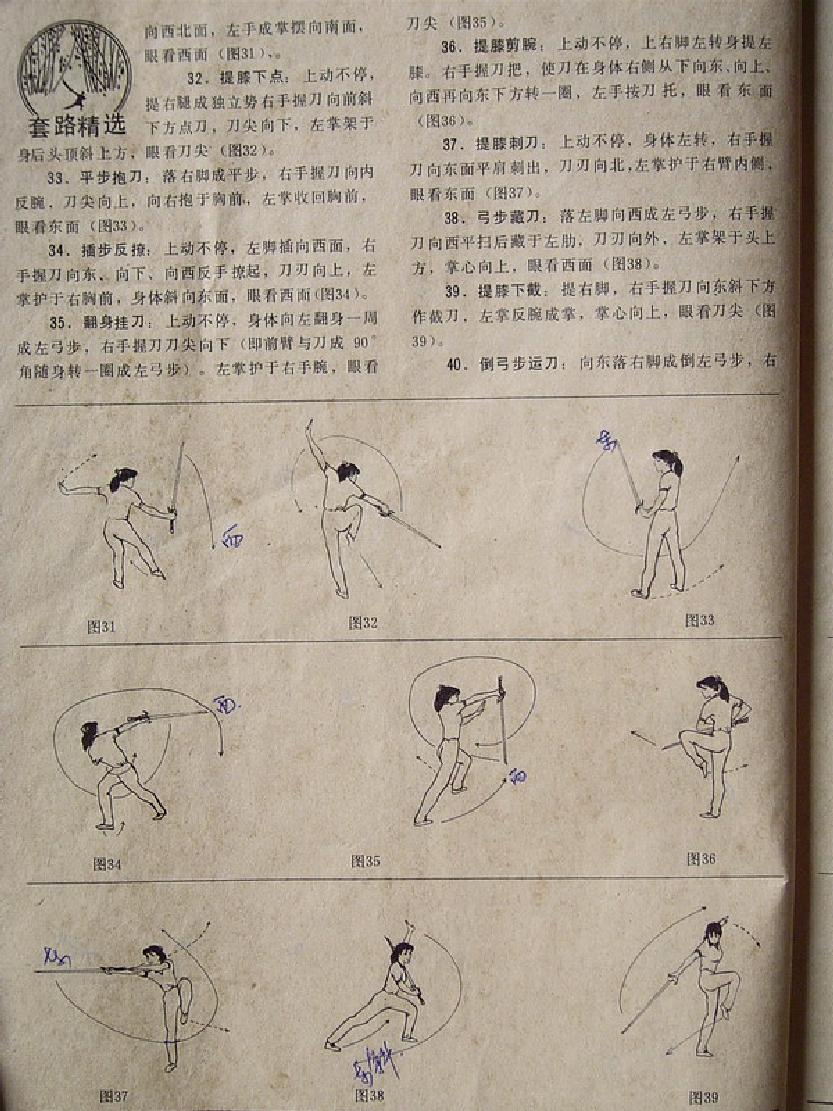 套路精选
向西北面，左手成掌摆向南面，
眼看西面（图31）、。
32．提膝下点：上动不停，
提右腿成独立势右手握刀向前斜
下方点刀，刀尖向下，左掌架于
身后头顶斜上方，眼看刀尖（图32）。
33．平步抱刀：落右脚成平步，右手握刀向内
反腕，刀尖向上，向右抱于胸前，左掌收回胸前，
眼看东面（图33）。
34．插步反撩：上动不停，左脚插向西面，右
手握刀向东、向下、向西反手撩起，刀刃向上，左
掌护于右胸前，身体斜向东面，眼看西面（图34）。
35．翻身挂刀：上动不停，身体向左翻身一周
成左弓步，右手握刀刀尖向下（即前臂与刀成 90°
角随身转一圈成左弓步）。左掌护于右手腕，眼看
刀尖（图35）。
36．提膝剪腕：上动不停，上右脚左转身提左
膝。右手握刀把，使刀在身体右侧从下向东、向上、
向西再向东下方转一圈，左手按刀托，眼看东面
（图36）。
37．提膝刺刀：上动不停，身体左转，右手握
刀向东面平肩刺出，刀刃向北，左掌护于右臂内侧，
眼看东面（图37）。
38．弓步藏刀：落左脚向西成左弓步，右手握
刀向西平扫后藏于左肋，刀刃向外，左掌架于头上
方，掌心向上，眼看西面（图38）。
39．提膝下截：提右脚，右手握刀向东斜下方
作截刀，左掌反腕成掌，掌心向上，眼看刀尖（图
39）。
40．倒弓步运刀：向东落右脚成倒左弓步，右
东
西
图31
图32
图33
西
西
图34
图35
图36
图37
图38
图39